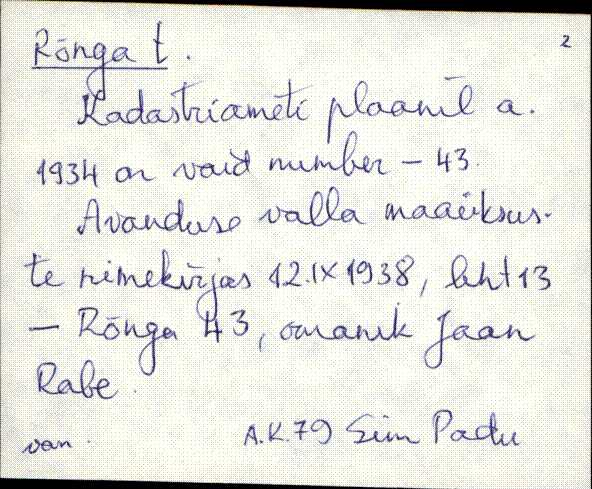 Rõnga t.
2
Kadastriameti plaanil a.
1934 on vaid number – 43.
Avanduse valla maaüksus-
te nimekirjas 12.IX 1938, leht 13
– Rõnga 43, omanik Jaan
Rabe.
van.
A.K.79 Siim Padu